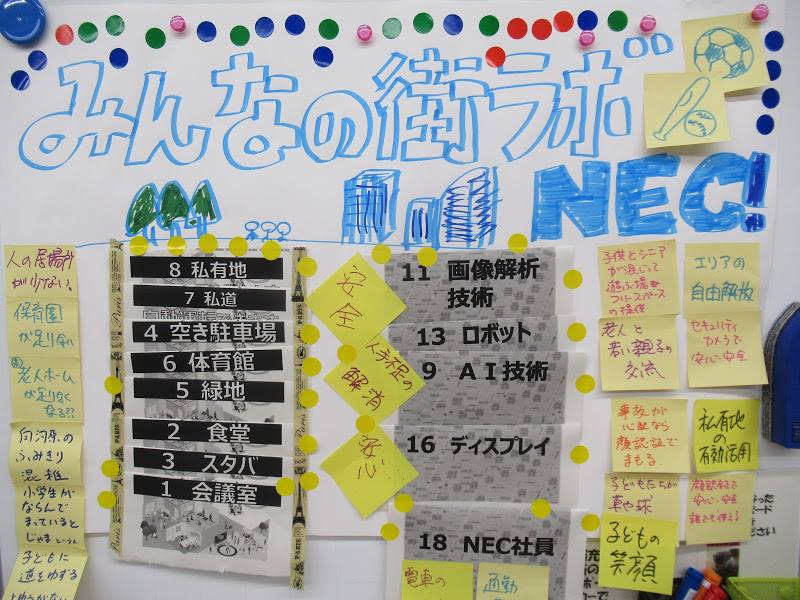 みんなの街ラボ
NEC!
人の居場所
が少ない、
保育園
が足りない
老人ホーム
が足りなく
なる??
向河原の
ふみきり
混雑
小学生が
ならんで
まっていると
じゃま
子どもに
道をゆずる
8 私有地
7 私道
4 空き駐車場
6 体育館
5 緑地
2 食堂
3 スタバ
1 会議室
Paris
PARIS
安全
人手不足の
解消
安心
11 画像解析
技術
13 ロボット
9 AI技術
16 ディスプレイ
18 NEC社員
電車の
通勤
子供とシニア
が混じって
遊ぶ場
フリースペース
の提供
老人と
若い親子の
交流
事故が
心配なら
顔認証で
まもる
子どもたちが
草や球
子どもの
笑顔
エリアの
自由解放
セキュリティ
カメラで
安心・安全
私有地
の
有効活用
顔認証で
安心・安全
誰でも使える